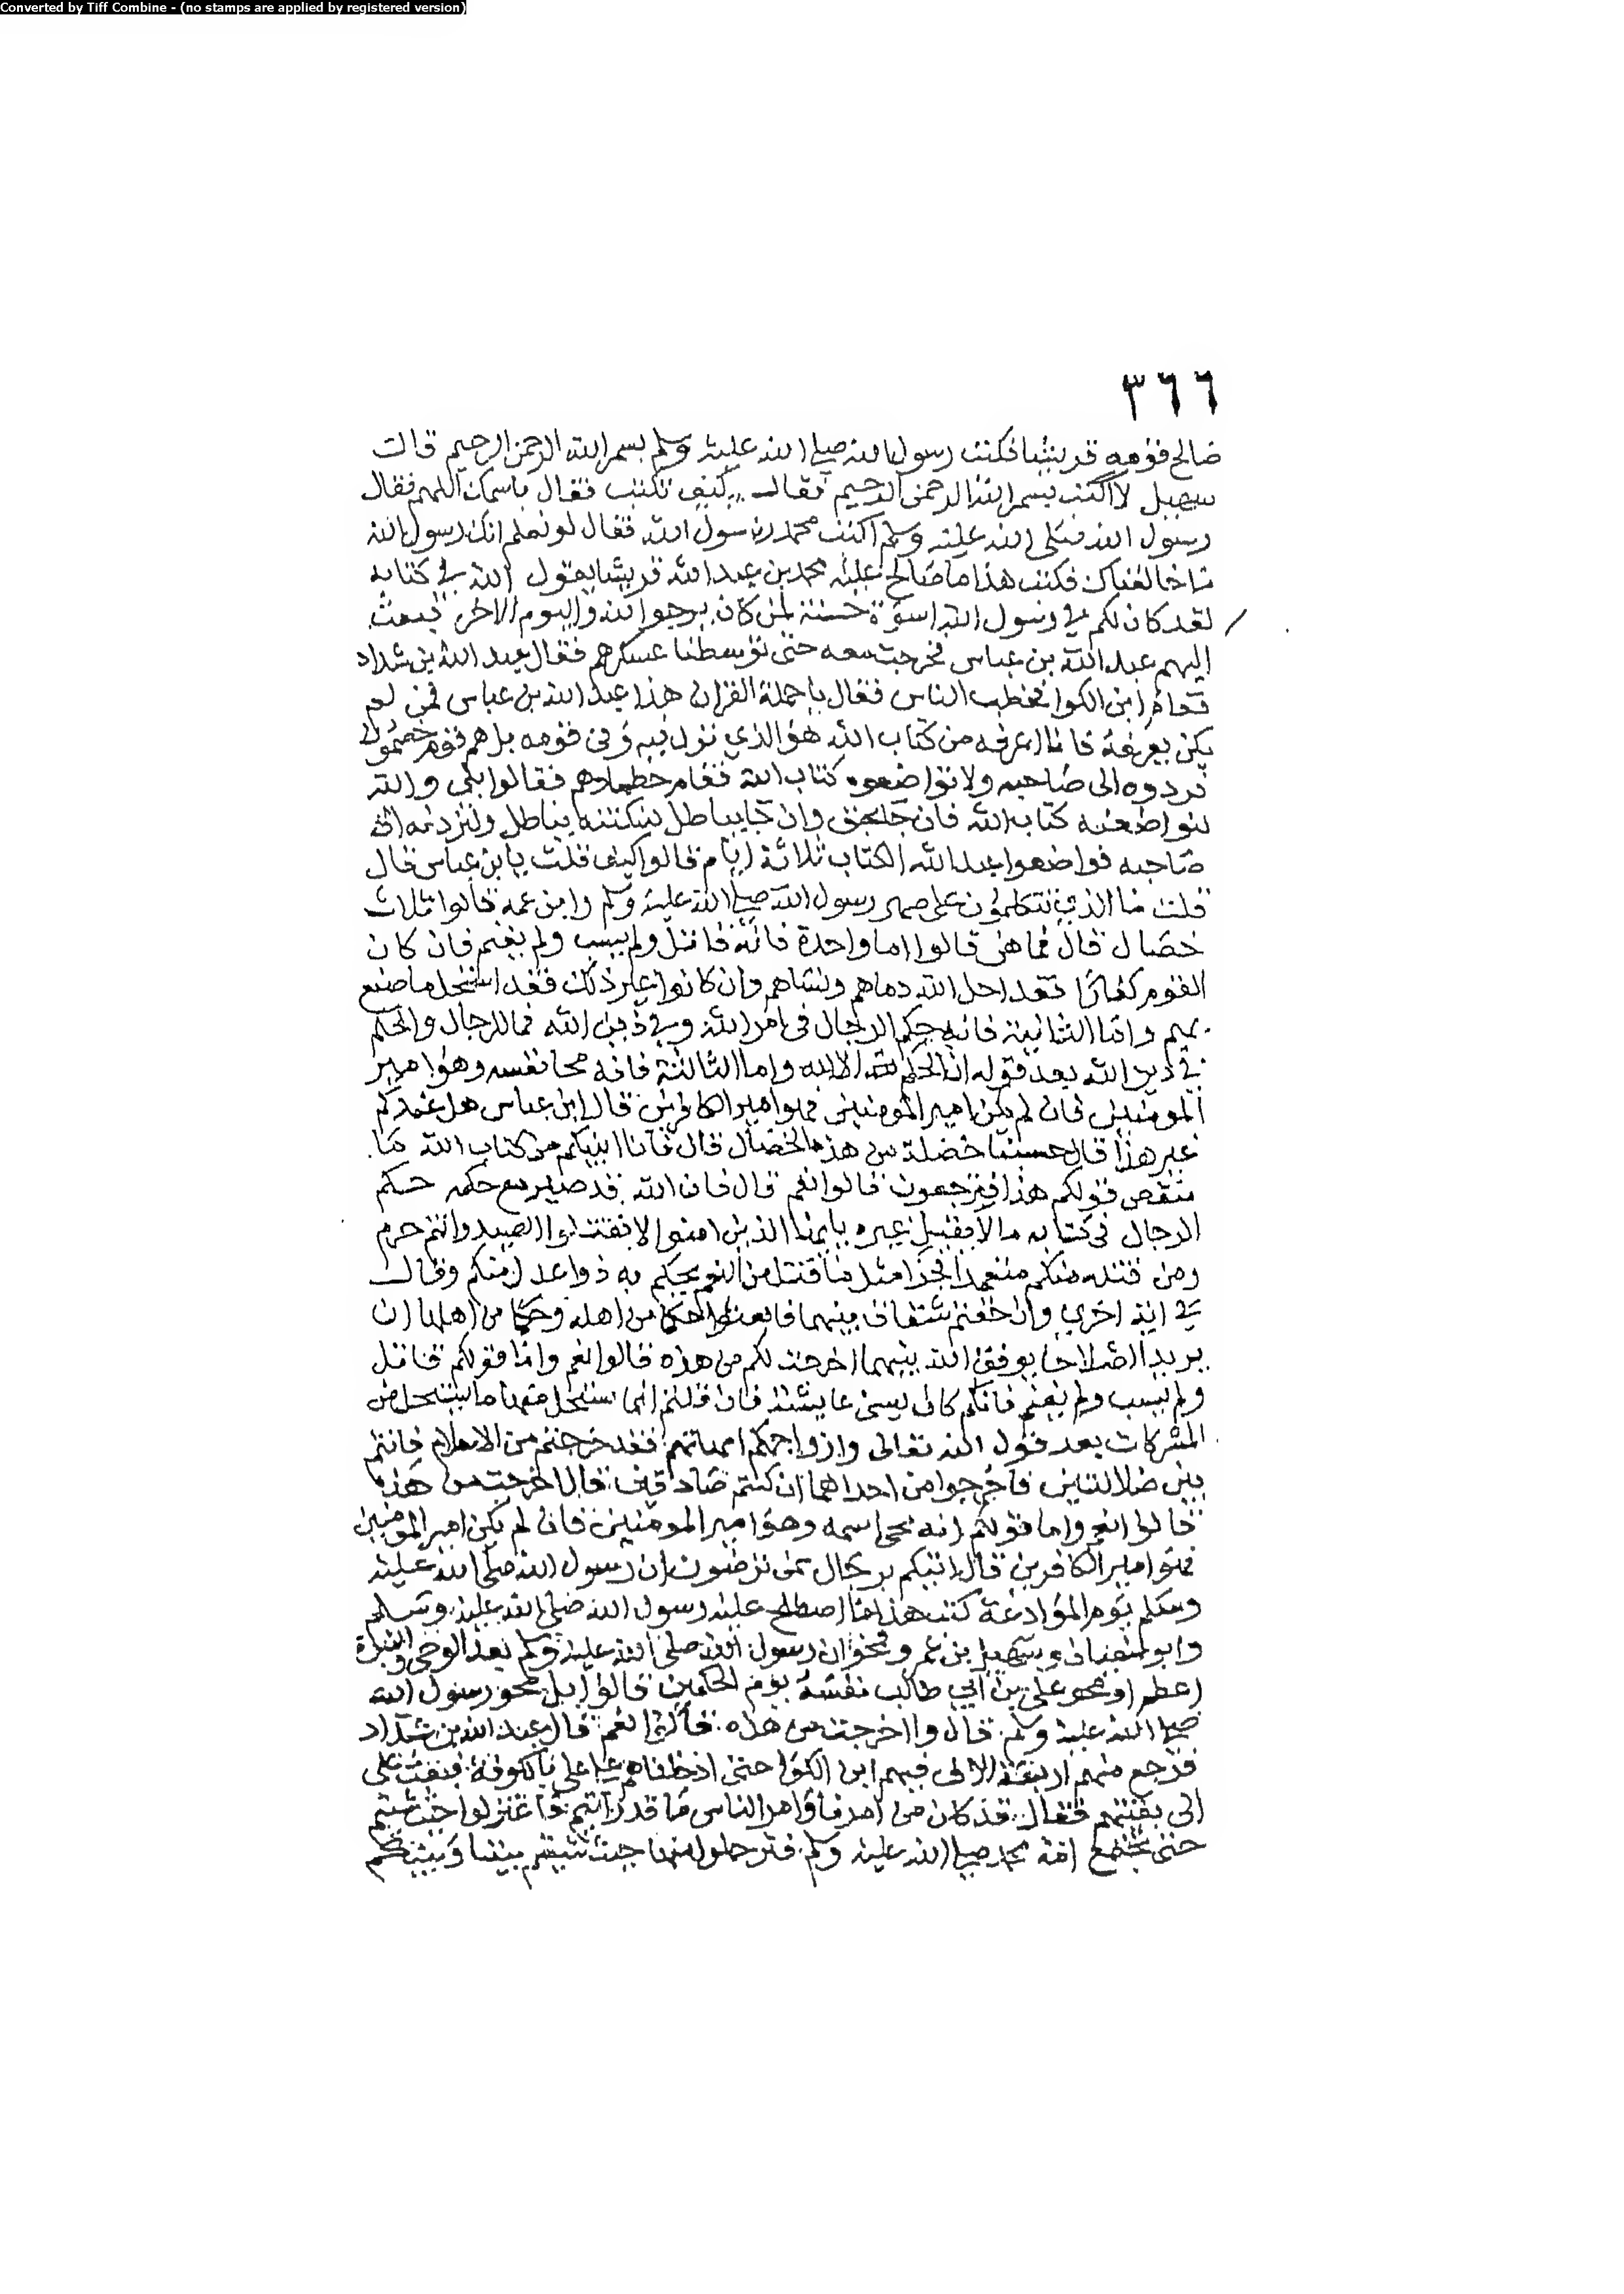 Converted by Tiff Combine - (no stamps are applied by registered version)
٣٦٦
صالح قومه قريشا فكتب رسول الله صلى الله عليه وسلم بسم الله الرحمن الرحيم قال
سهيل لا اكتب بسم الله الرحمن الرحيم فقال كيف تكتب فقال باسمك اللهم فقال
رسول الله صلى الله عليه وسلم اكتب محمد رسول الله فقال لو نعلم انك رسول الله
ما خالفناك فكتب هذا ما صالح عليه محمد بن عبد الله قريشا يقول الله في كتابه
لقد كان لكم في رسول الله اسوة حسنة لمن كان يرجوا الله واليوم الاخر فبعث
اليهم عبد الله بن عباس فخرجت معه حتى توسطنا عسكرهم فقال عبد الله بن شداد
فقام ابن الكوا فخطب الناس فقال يا حملة القران هذا عبد الله بن عباس فمن لم
يكن يعرفه فانا اعرفه من كتاب الله هو الذي نزل فيه وفى قومه بل هم قوم خصمون
فردوه الى صاحبه ولا تواضعوه كتاب الله فقام خطباوهم فقالوا بلى والله
لنواضعنه كتاب الله فان جا بحق وان جا بباطل لنبكتنه بباطل ولنردنه الى
صاحبه فواضعوا عبد الله الكتاب ثلاثة ايام قالوا كيف قلت يا ابن عباس قال
قلت ما الذي تتكلمون على صهر رسول الله صلى الله عليه وسلم وابن عمه قالوا ثلاث
خصال قال فما هي قالوا اما واحدة فانه قاتل ولم يسب ولم يغنم فان كان
القوم كفارا فقد احل الله دماهم ونساهم وان كانوا غير ذلك فقد استحل ما صنع
بهم واما الثانية فانه حكم الرجال في امر الله وفي دين الله فما للرجال والحكم
في دين الله بعد قوله ان الحكم الا لله واما الثالثة فانه محا نفسه وهو امير
المومنين فان لم يكن امير المومنين فهو امير الكافرين قال ابن عباس هل عندكم
غير هذا قال حسبنا خصلة من هذه الخصال قال فانا انبيكم من كتاب الله ما
ينقص قولكم هذا فترجعون قالوا نعم قال فان الله قد صير مع حكمه حكم
الرجال في كتابه ما لا يقبل غيره يا ايها الذين امنوا لا تقتلوا الصيد وانتم حرم
ومن قتله منكم متعمدا فجزا مثل ما قتل من النعم يحكم به ذوا عدل منكم وقال
في اية اخري وان خفتم شقاق بينهما فابعثوا حكما من اهله وحكما من اهلها ان
يريدا اصلاحا يوفق الله بينهما اخرجت لكم من هذه قالوا نعم واما قولكم قاتل
ولم يسب ولم يغنم فانكم كان يسبى عايشة فان قلتم انما نستحل منها ما يستحل من
المشركات بعد قول الله تعالى وازواجهم امهاتهم فقد خرجتم من الاسلام فانتم
بين ضلالتين فاخرجوا من احداهما ان كنتم صادقين قال اخرجت من هذه
قالوا نعم واما قولكم انه محى اسمه وهو امير المومنين فان لم يكن امير المومنين
فهو امير الكافرين قال انبيكم برجال ممن ترضون ان رسول الله صلى الله عليه
وسلم يوم الموادعة كتب هذا ما اصطلح عليه رسول الله صلى الله عليه وسلم
وابو سفيان وسهيل بن عمرو فمحوان رسول الله صلى الله عليه وسلم بعد الوحي والنبوة
اعظم او محو علي بن ابي طالب نفسه يوم الحكمين قالوا بل محو رسول الله
صلى الله عليه وسلم قال اخرجت من هذه قالوا نعم قال عبد الله بن شداد
فرجع منهم اربعة الاف فيهم ابن الكوا حتى ادخلناهم على علي بالكوفة فبعث علي
الى بقيتهم فقال قد كان من امرنا وامر الناس ما قد رايتم فاعتزلوا حيث شيتم
حتى تجتمع امة محمد صلى الله عليه وسلم فترحلوا منها حيث شيتم بيننا وبينكم